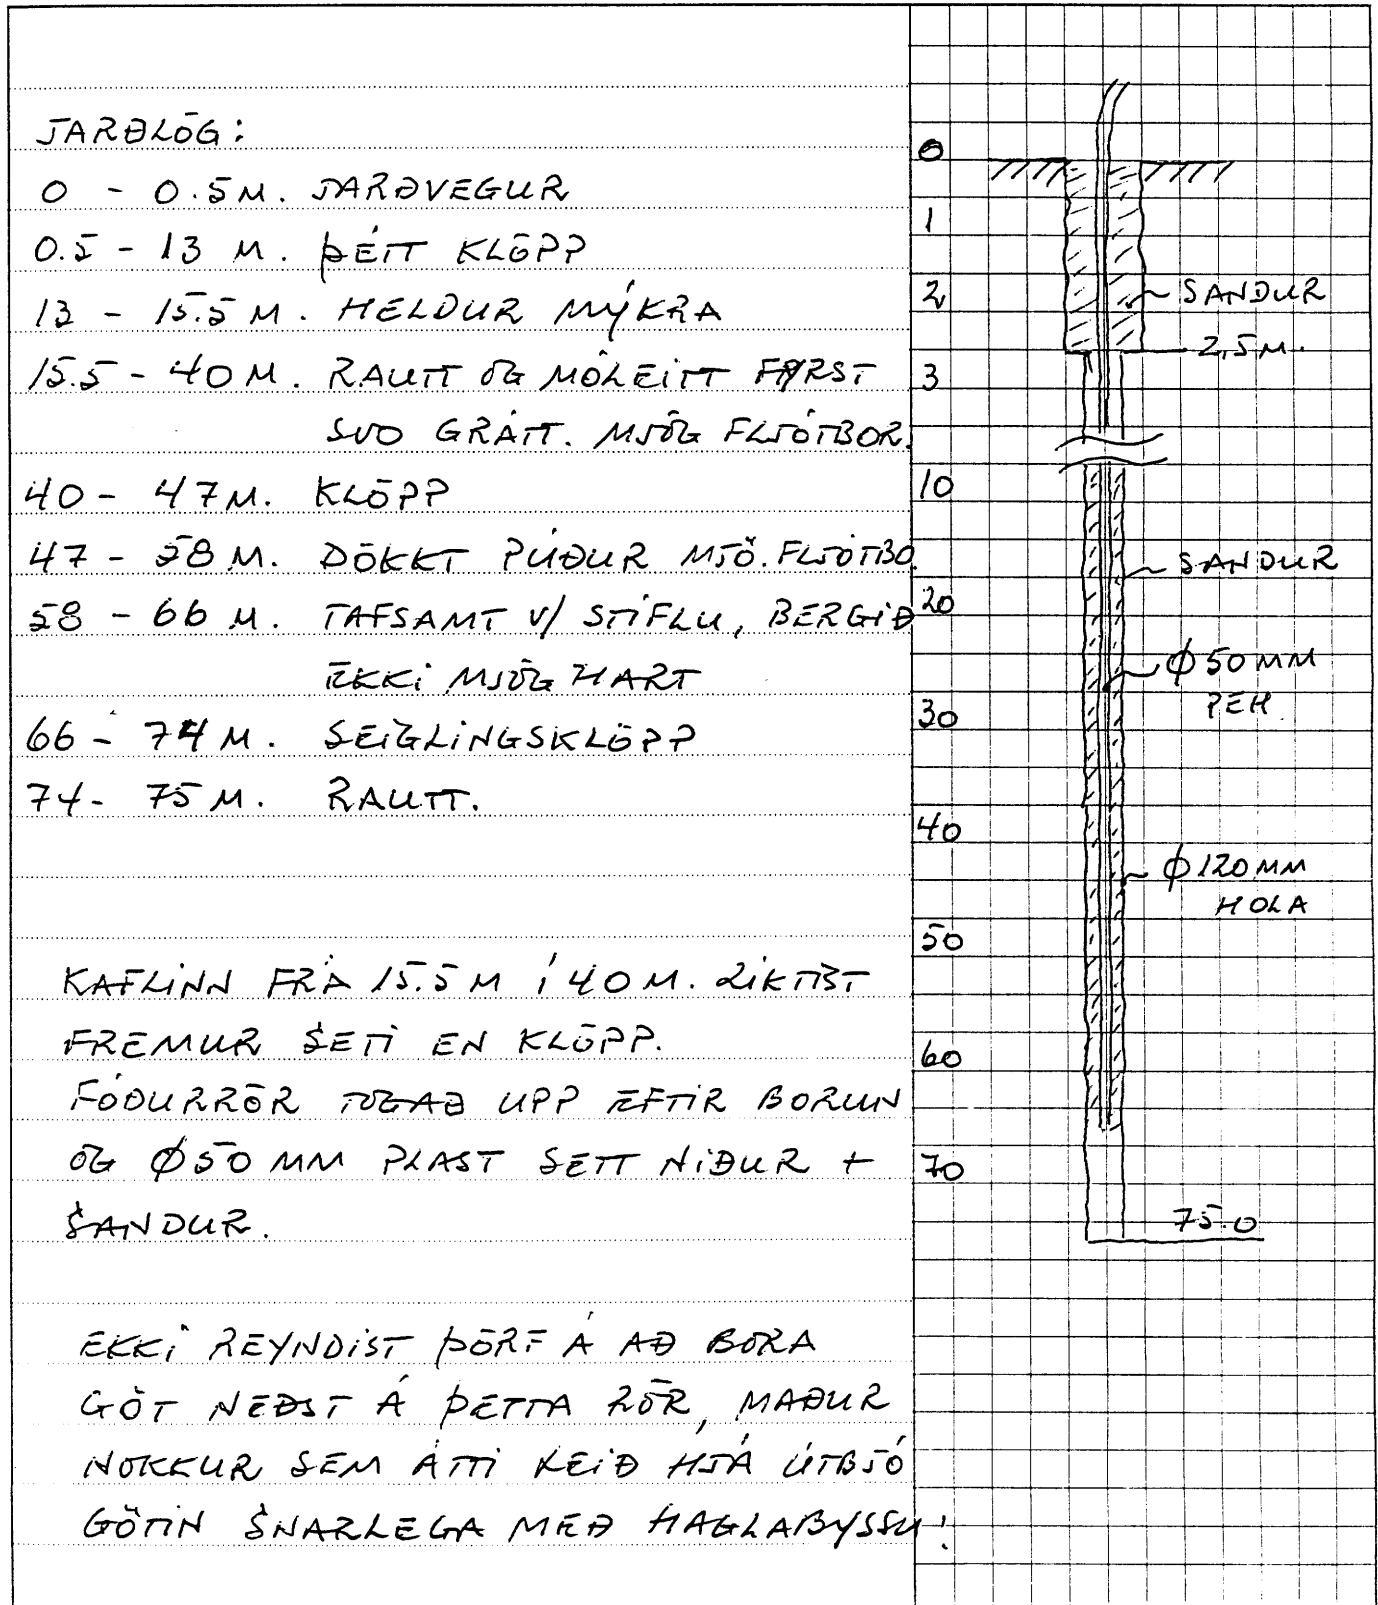 JARÐLÖG:
0 - 0.5 M. JARÐVEGUR
0.5 - 13 M. ÞÉTT KLÖPP
13 - 15.5 M. HELDUR MÝKRA
15.5 - 40 M. RAUTT OG MÓLEITT FYRST
SVO GRÁTT. MJÖG FLJÓTBOR.
40 - 47 M. KLÖPP
47 - 58 M. DÖKKT PÚÐUR MJÖ. FLJÓTBO
58 - 66 M. TAFSAMT V/ STÍFLU, BERGIÐ
EKKI MJÖG HART
66 - 74 M. SEIGLINGSKLÖPP
74 - 75 M. RAUTT.
KAFLINN FRÁ 15.5 M Í 40 M. LIKTIST
FREMUR SETI EN KLÖPP.
FÓÐURRÖR TOGAÐ UPP EFTIR BORUN
OG Ø50 MM PLAST SETT NIÐUR +
SANDUR.
EKKI REYNDIST ÞÖRF Á AÐ BORA
GÖT NEÐST Á ÞETTA RÖR, MAÐUR
NOKKUR SEM ÁTTI LEIÐ HJÁ ÚTBJÓ
GÖTIN SNARLEGA MEÐ HAGLABYSSU!
0
1
2
SANDUR
2,5 M.
3
10
SANDUR
20
Ø 50 MM
PEH
30
40
Ø 120 MM
HOLA
50
60
70
75.0